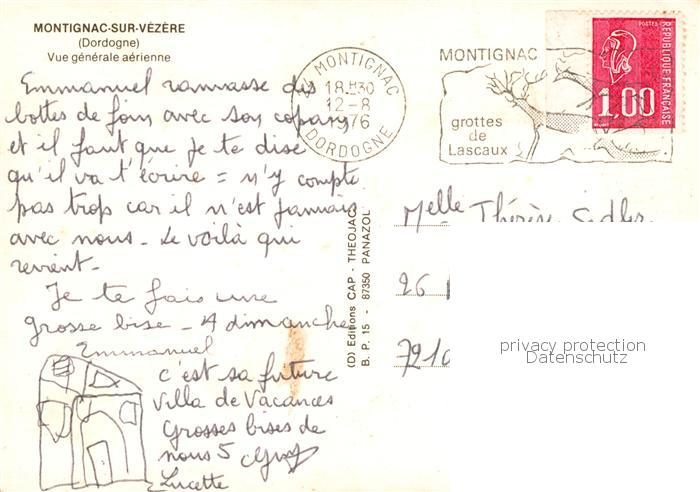 MONTIGNAC-SUR-VÉZÈRE
(Dordogne)
Vue générale aérienne
Emmanuel ramasse des
bottes de foin avec son copain
et il faut que je te dise
qu'il va t'écrire = n'y compte
pas trop car il n'est jamais
avec nous - Le voilà qui
revient -
Je te fais une
grosse bise - A dimanche
Emmanuel
c'est sa future
Villa de Vacances
Grosses bises de
nous 5
Lucette
MONTIGNAC
18H30
12-8
1976
DORDOGNE
MONTIGNAC
grottes
de
Lascaux
POSTES
RÉPUBLIQUE FRANÇAISE
1,00
(D) Editions CAP - THEOJAC
B. P. 15 - 87350 PANAZOL
Melle Thérèse
26
7210
privacy protection
Datenschutz